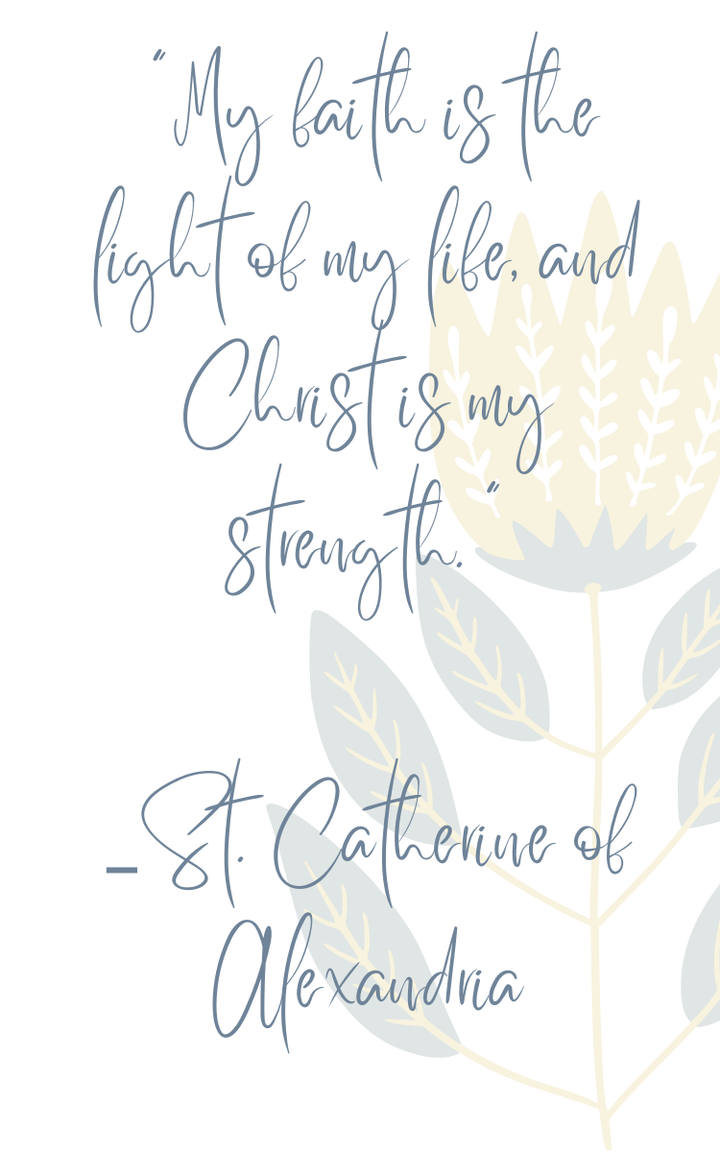 "My faith is the
light of my life, and
Christ is my
strength."
_St. Catherine of
Alexandria